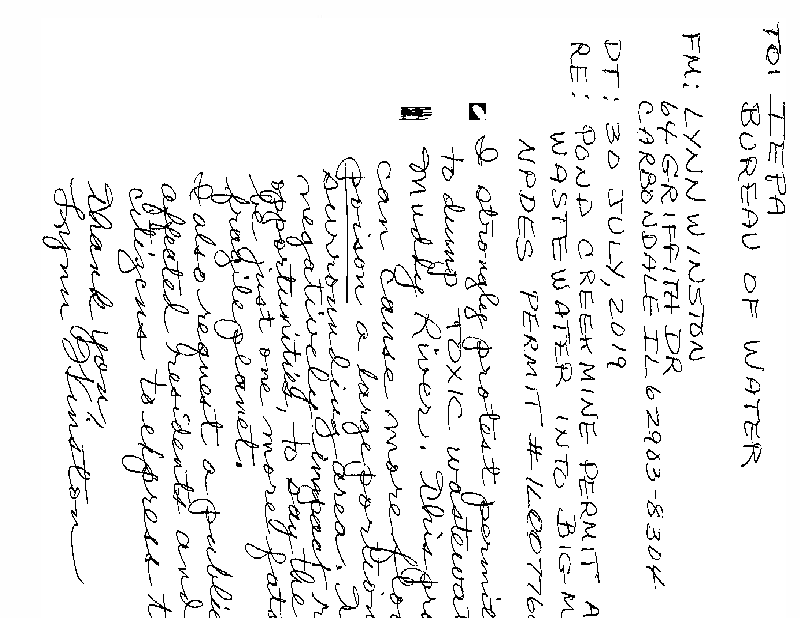 TO: IEPA
BUREAU OF WATER
FM: LYNN WINSTON
64 GRIFFITH DR
CARBONDALE IL 62903-8304
DT: 30 JULY, 2019
RE: POND CREEK MINE PERMIT A
WASTEWATER INTO BIG M
NPDES PERMIT # IL00776
I strongly protest permit
to dump TOXIC wastewat
Muddy River. This pro
can cause more floo
poison a large portion
surrounding area. I
negatively impact r
opportunities, to say the
be just one more fat
fragile planet.
I also request a public
affected residents and
citizens to express t
Thank you.
Lynn Winston